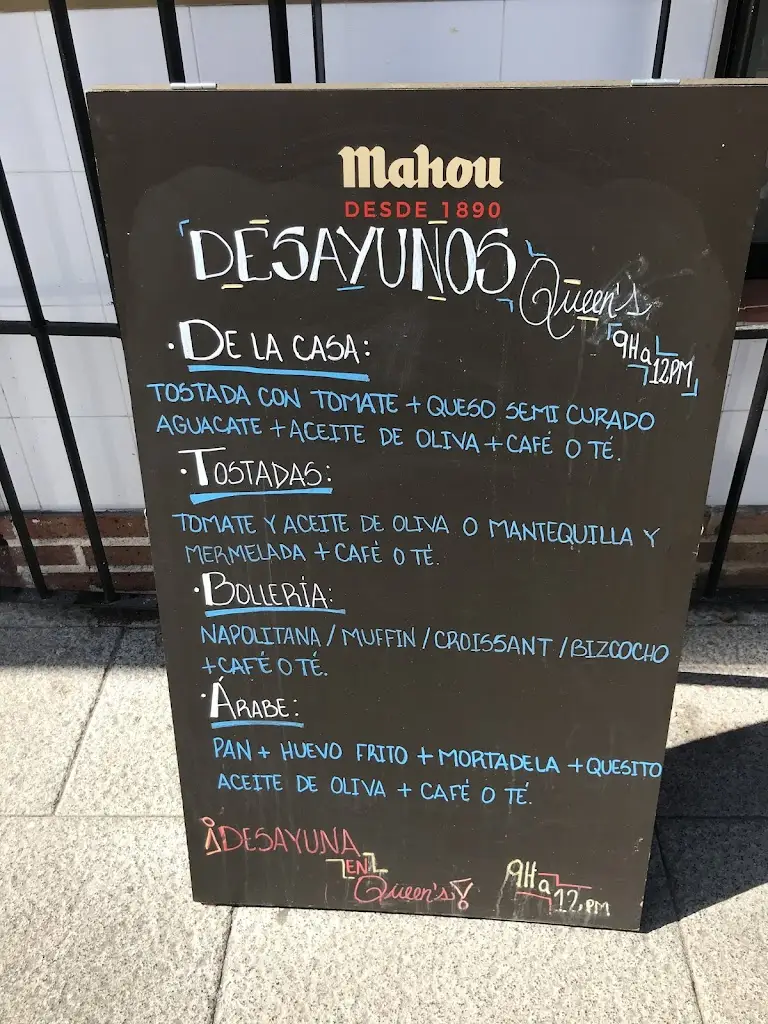 Mahou
DESDE 1890
DESAYUNOS Queen's
9H a 12PM
· DE LA CASA:
TOSTADA CON TOMATE + QUESO SEMI CURADO
AGUACATE + ACEITE DE OLIVA + CAFÉ O TÉ.
· TOSTADAS:
TOMATE Y ACEITE DE OLIVA O MANTEQUILLA Y
MERMELADA + CAFÉ O TÉ.
· BOLLERÍA:
NAPOLITANA / MUFFIN / CROISSANT / BIZCOCHO
+ CAFÉ O TÉ.
· ÁRABE:
PAN + HUEVO FRITO + MORTADELA + QUESITO
ACEITE DE OLIVA + CAFÉ O TÉ.
¡DESAYUNA
EN
Queen's!
9H a 12.PM